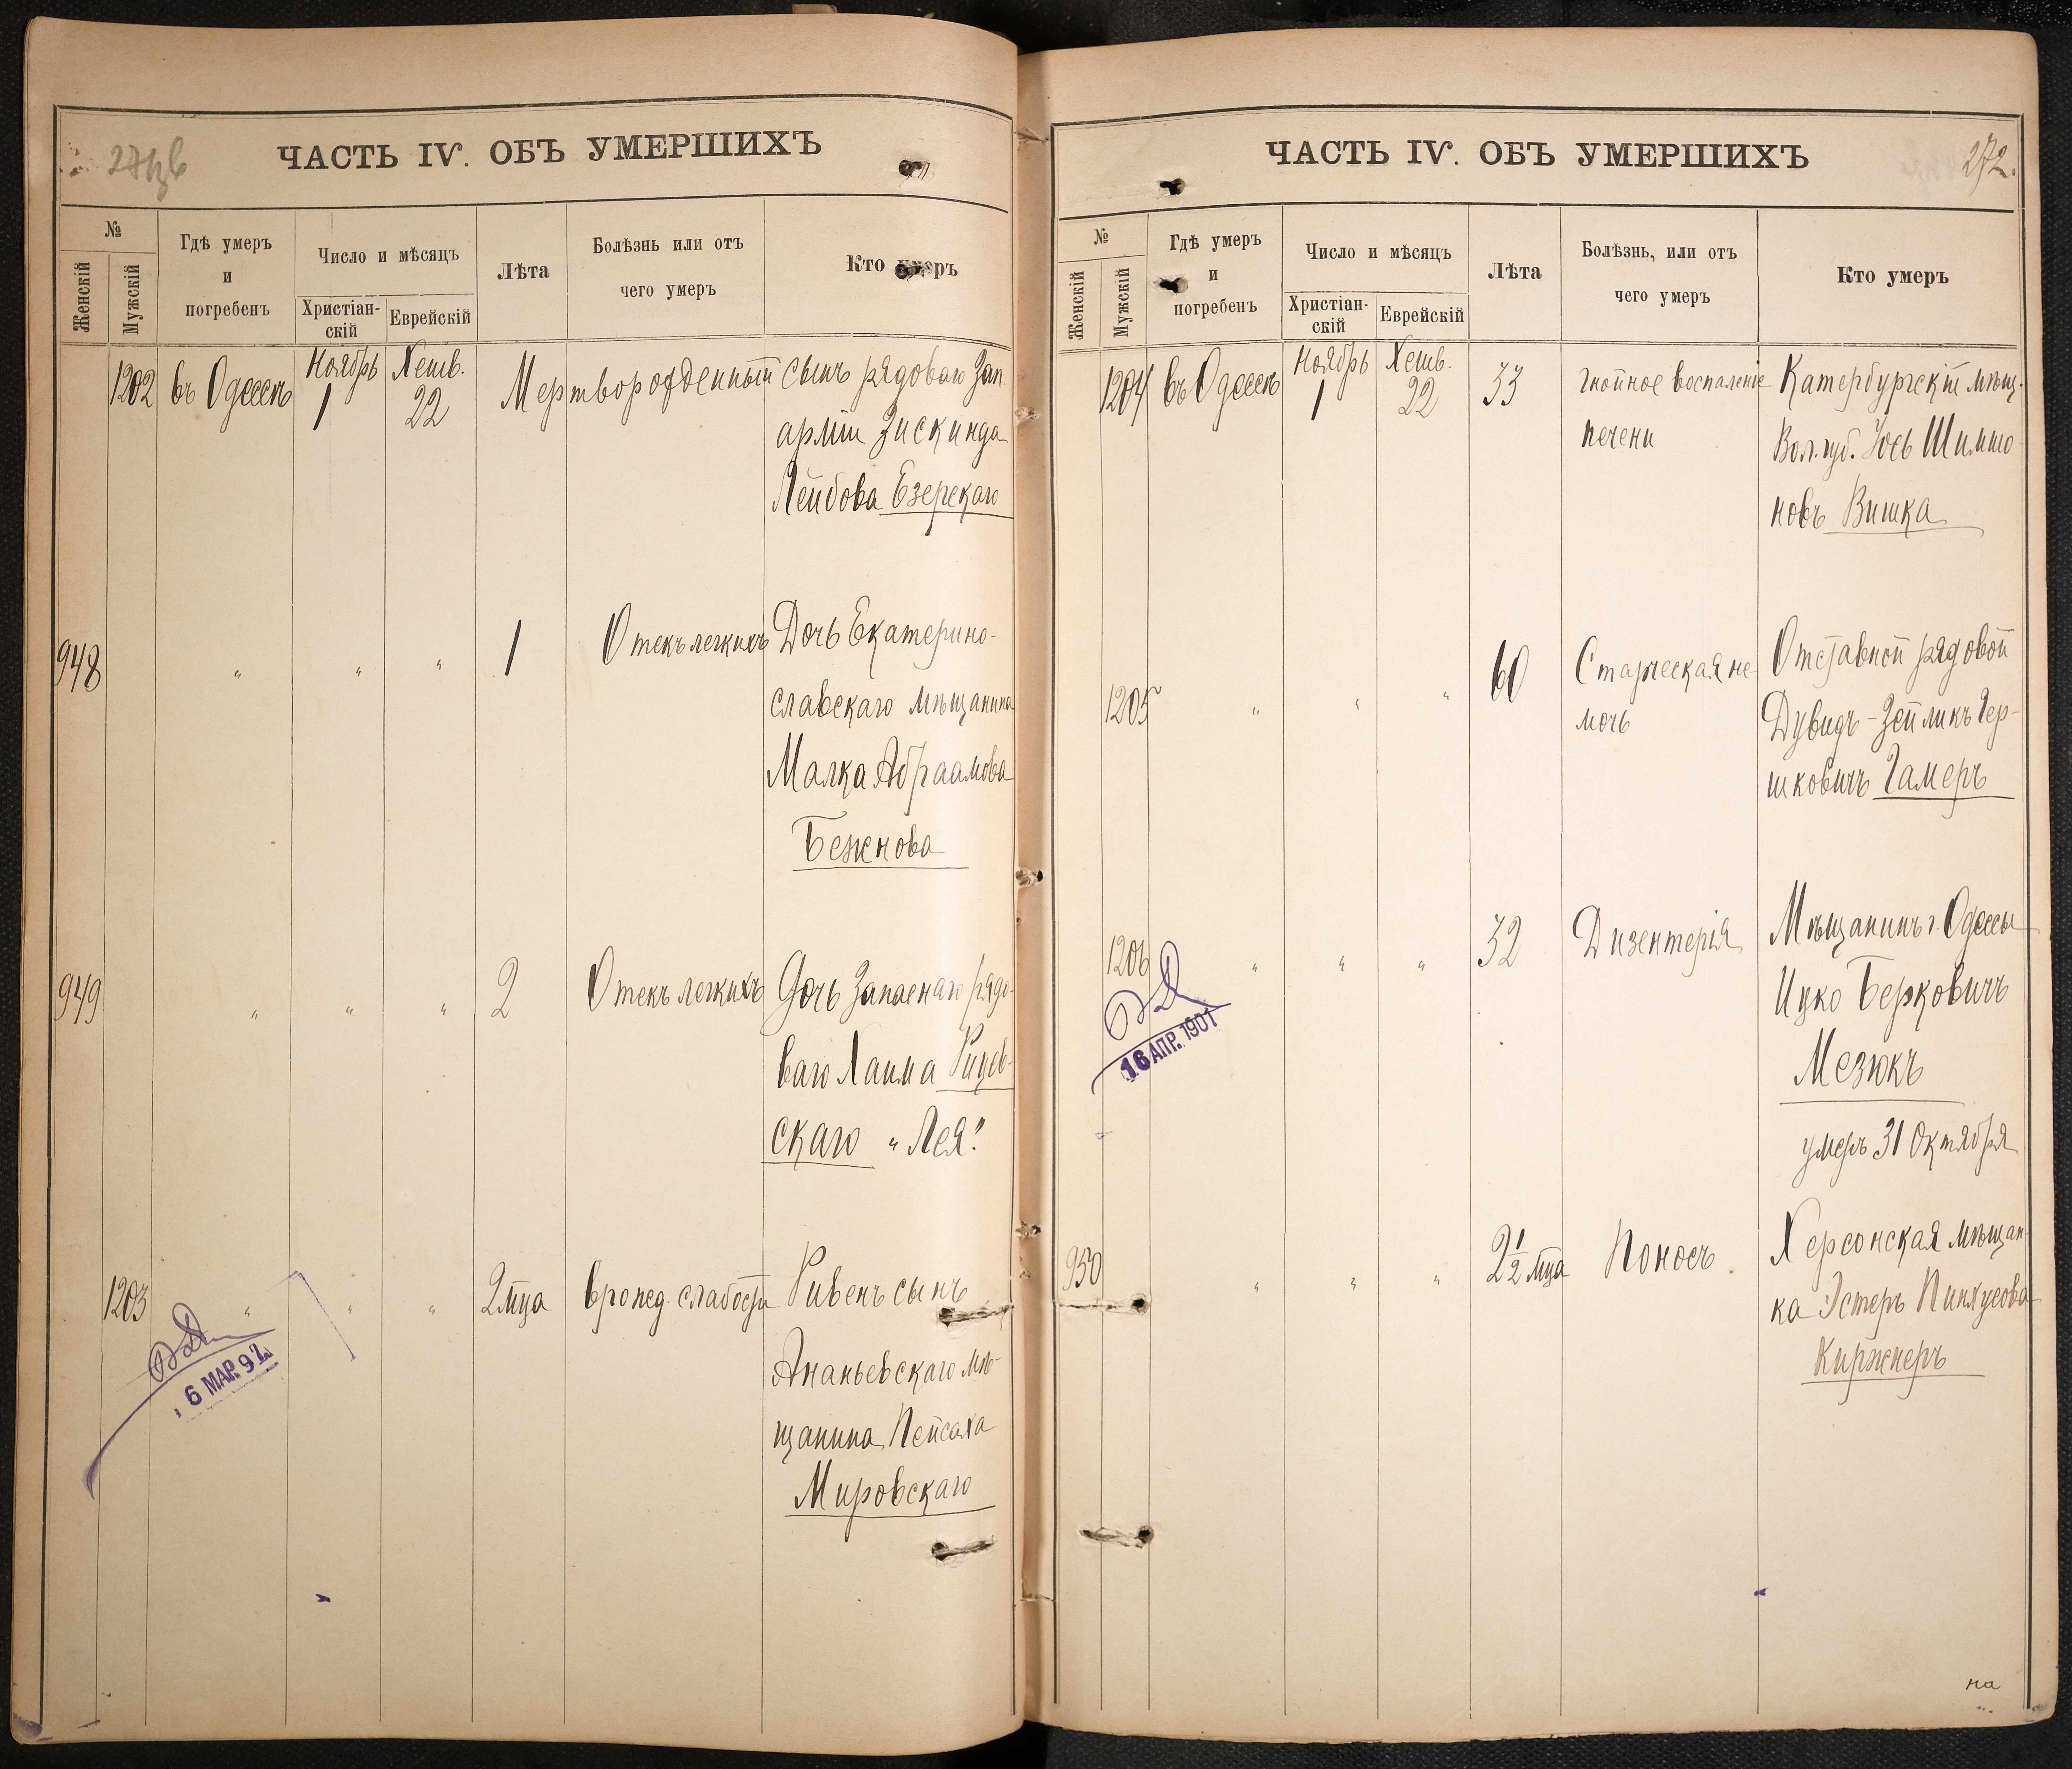 ЧАСТЬ IV. ОБЪ УМЕРШИХЪ
№
Женскій
Мужскій
Гдѣ умеръ
и
погребенъ
Число и мѣсяцъ
Христіан-
скій
Еврейскій
Лѣта
Болѣзнь или отъ
чего умеръ
Кто умеръ
1202 въ Одессѣ Ноябрь 1 Хешв. 22 Мертворожденный Сынъ рядоваго Зап.
арміи Зискинда
Лейбова Езерскаго
948 " " " 1 Отекъ легкихъ Дочь Екатерино-
славскаго мѣщанина
Малка Абраамова
Беженова
949 " " " 2 Отекъ легкихъ Дочь Запаснаго рядо-
ваго Хаима
скаго „Лея"
1203 " " " 2 мца врожд. слабости Рувенъ сынъ
Ананьевскаго мѣ-
щанина Пейсаха
Мировскаго
6 МАР. 97
ЧАСТЬ IV. ОБЪ УМЕРШИХЪ
272.
№
Женскій
Мужскій
Гдѣ умеръ
и
погребенъ
Число и мѣсяцъ
Христіан-
скій
Еврейскій
Лѣта
Болѣзнь, или отъ
чего умеръ
Кто умеръ
1204 въ Одессѣ Ноябрь 1 Хешв. 22 33 Гнойное воспаленіе Катербургскій мѣщ.
печени Вол. губ. Іось Шимшо-
новъ Вишка
1205 " " " 60 Старческая не- Отставной рядовой
мочь Дувидъ-Зейликъ Гер-
шковичъ Гамеръ
1206 " " " 32 Дизентерія Мѣщанинъ г. Одессы
Ицко Берковичъ
Мезюкъ
умеръ 31 Октября
16 АПР. 1901
950 " " " 2 1/2 мца Поносъ. Херсонская мѣщан-
ка Эстеръ Пинхусова
Киржнеръ
на